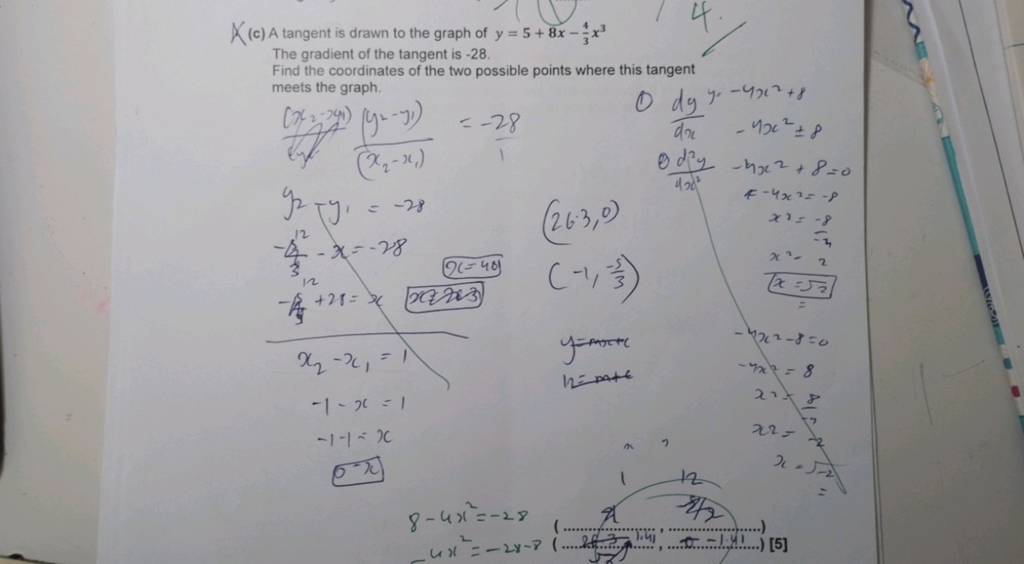 4.
(c) A tangent is drawn to the graph of y = 5 + 8x − 4/3 x³
The gradient of the tangent is -28.
Find the coordinates of the two possible points where this tangent
meets the graph.
(y₂-y₁) / (x₂-x₁) = -28 / 1
y₂ - y₁ = -28
- x = -28
x = 40
+28 = x
x₂ - x₁ = 1
-1 - x = 1
-1-1 = x
(26.3, 0)
(-1, -5/3)
y=mx+c
12=m+c
① dy/dx y= -4x² + 8
-4x² ± 8
② d²y/dx² -4x² + 8 = 0
-4x² = -8
x² = -8
x² = 2
x = √2
=
-4x² - 8 = 0
-4x² = 8
x² = 8
x2 = -2
x = √-2
=
1 12
8 - 4x² = -28
-4x² = -28-8
(.................... , ....................)
(.................... 1.41 , .................... -1.41) [5]